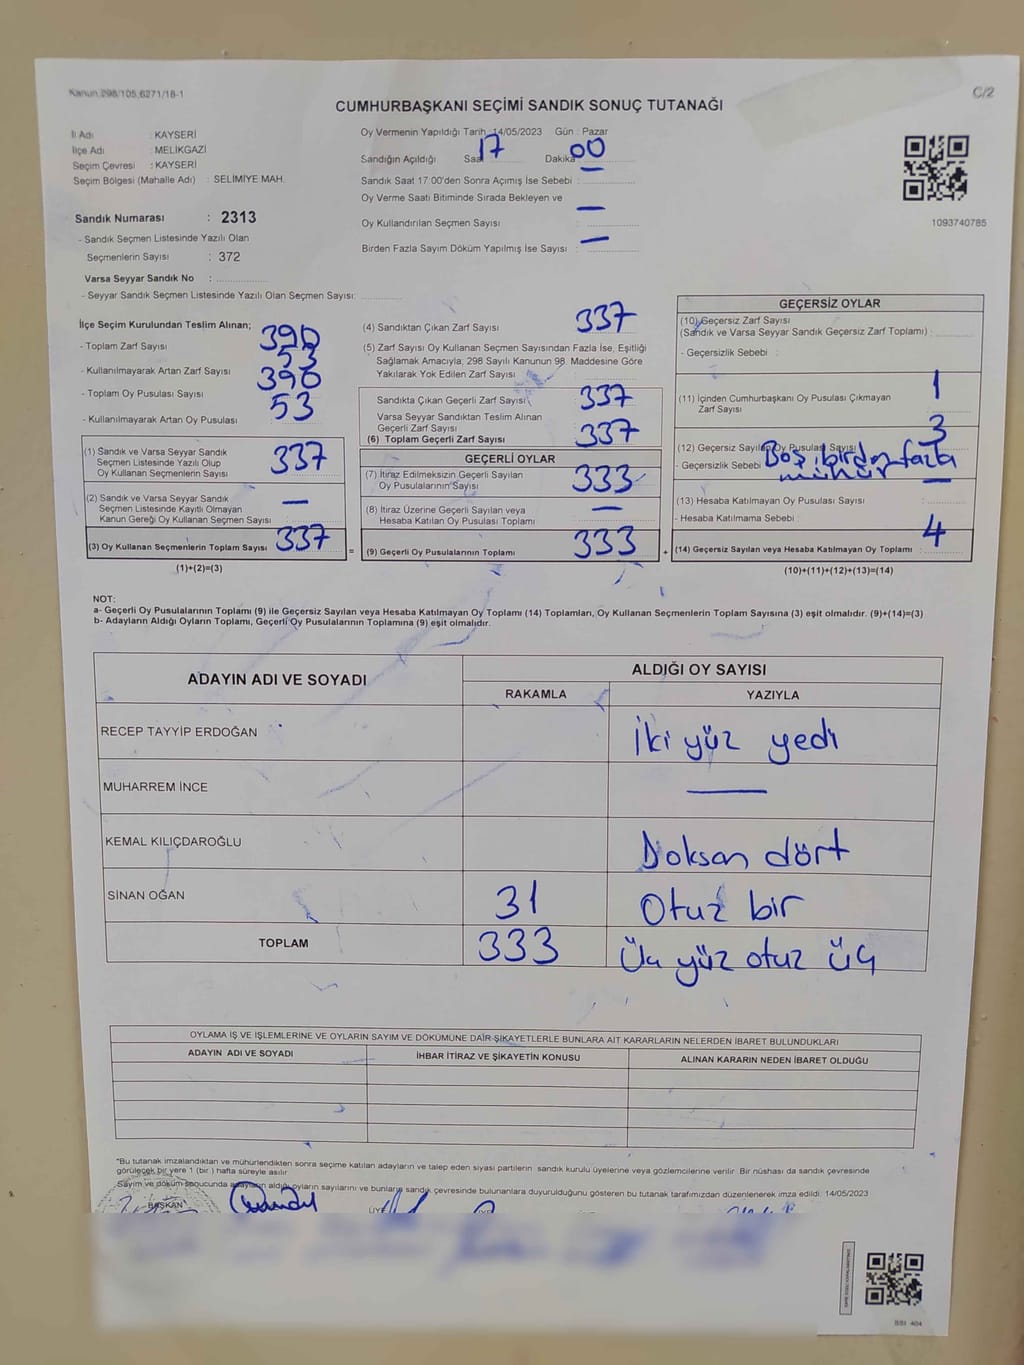 Kanun 298/105,6271/18-1
C/2
CUMHURBAŞKANI SEÇİMİ SANDIK SONUÇ TUTANAĞI
İl Adı : KAYSERİ
İlçe Adı : MELİKGAZİ
Seçim Çevresi : KAYSERİ
Seçim Bölgesi (Mahalle Adı) : SELİMİYE MAH.
Sandık Numarası : 2313
- Sandık Seçmen Listesinde Yazılı Olan
Seçmenlerin Sayısı : 372
Varsa Seyyar Sandık No :
- Seyyar Sandık Seçmen Listesinde Yazılı Olan Seçmen Sayısı:
Oy Vermenin Yapıldığı Tarih 14/05/2023 Gün : Pazar
Sandığın Açıldığı Saat 17 Dakika 00
Sandık Saat 17:00'den Sonra Açımış İse Sebebi : —
Oy Verme Saati Bitiminde Sırada Bekleyen ve
Oy Kullandırılan Seçmen Sayısı : —
Birden Fazla Sayım Döküm Yapılmış İse Sayısı : —
1093740785
İlçe Seçim Kurulundan Teslim Alınan;
- Toplam Zarf Sayısı 390
- Kullanılmayarak Artan Zarf Sayısı 53
- Toplam Oy Pusulası Sayısı 390
- Kullanılmayarak Artan Oy Pusulası 53
(1) Sandık ve Varsa Seyyar Sandık
Seçmen Listesinde Yazılı Olup
Oy Kullanan Seçmenlerin Sayısı 337
(2) Sandık ve Varsa Seyyar Sandık
Seçmen Listesinde Kayıtlı Olmayan
Kanun Gereği Oy Kullanan Seçmen Sayısı —
(3) Oy Kullanan Seçmenlerin Toplam Sayısı 337
(1)+(2)=(3)
(4) Sandıktan Çıkan Zarf Sayısı 337
(5) Zarf Sayısı Oy Kullanan Seçmen Sayısından Fazla İse, Eşitliği
Sağlamak Amacıyla; 298 Sayılı Kanunun 98. Maddesine Göre
Yakılarak Yok Edilen Zarf Sayısı
Sandıkta Çıkan Geçerli Zarf Sayısı 337
Varsa Seyyar Sandıktan Teslim Alınan
Geçerli Zarf Sayısı
(6) Toplam Geçerli Zarf Sayısı 337
GEÇERLİ OYLAR
(7) İtiraz Edilmeksizin Geçerli Sayılan
Oy Pusulalarının Sayısı 333
(8) İtiraz Üzerine Geçerli Sayılan veya
Hesaba Katılan Oy Pusulası Toplamı —
= (9) Geçerli Oy Pusulalarının Toplamı 333 +
GEÇERSİZ OYLAR
(10) Geçersiz Zarf Sayısı
(Sandık ve Varsa Seyyar Sandık Geçersiz Zarf Toplamı) :
- Geçersizlik Sebebi :
(11) İçinden Cumhurbaşkanı Oy Pusulası Çıkmayan
Zarf Sayısı 1
(12) Geçersiz Sayılan Oy Pusulası Sayısı 3
- Geçersizlik Sebebi Boş, birden fazla
mühür
(13) Hesaba Katılmayan Oy Pusulası Sayısı : —
- Hesaba Katılmama Sebebi :
(14) Geçersiz Sayılan veya Hesaba Katılmayan Oy Toplamı : 4
(10)+(11)+(12)+(13)=(14)
NOT:
a- Geçerli Oy Pusulalarının Toplamı (9) ile Geçersiz Sayılan veya Hesaba Katılmayan Oy Toplamı (14) Toplamları, Oy Kullanan Seçmenlerin Toplam Sayısına (3) eşit olmalıdır. (9)+(14)=(3)
b- Adayların Aldığı Oyların Toplamı, Geçerli Oy Pusulalarının Toplamına (9) eşit olmalıdır.
ADAYIN ADI VE SOYADI
ALDIĞI OY SAYISI
RAKAMLA YAZIYLA
RECEP TAYYİP ERDOĞAN İki yüz yedi
MUHARREM İNCE —
KEMAL KILIÇDAROĞLU Doksan dört
SİNAN OĞAN 31 Otuz bir
TOPLAM 333 Üç yüz otuz üç
OYLAMA İŞ VE İŞLEMLERİNE VE OYLARIN SAYIM VE DÖKÜMÜNE DAİR ŞİKAYETLERLE BUNLARA AİT KARARLARIN NELERDEN İBARET BULUNDUKLARI
ADAYIN ADI VE SOYADI İHBAR İTİRAZ VE ŞİKAYETİN KONUSU ALINAN KARARIN NEDEN İBARET OLDUĞU
*Bu tutanak imzalandıktan ve mühürlendikten sonra seçime katılan adayların ve talep eden siyasi partilerin sandık kurulu üyelerine veya gözlemcilerine verilir. Bir nüshası da sandık çevresinde
görülecek bir yere 1 (bir ) hafta süreyle asılır.
Sayım ve döküm sonucunda adayların aldığı oyların sayılarını ve bunların sandık çevresinde bulunanlara duyurulduğunu gösteren bu tutanak tarafımızdan düzenlenerek imza edildi. 14/05/2023
BAŞKAN
ÜYE